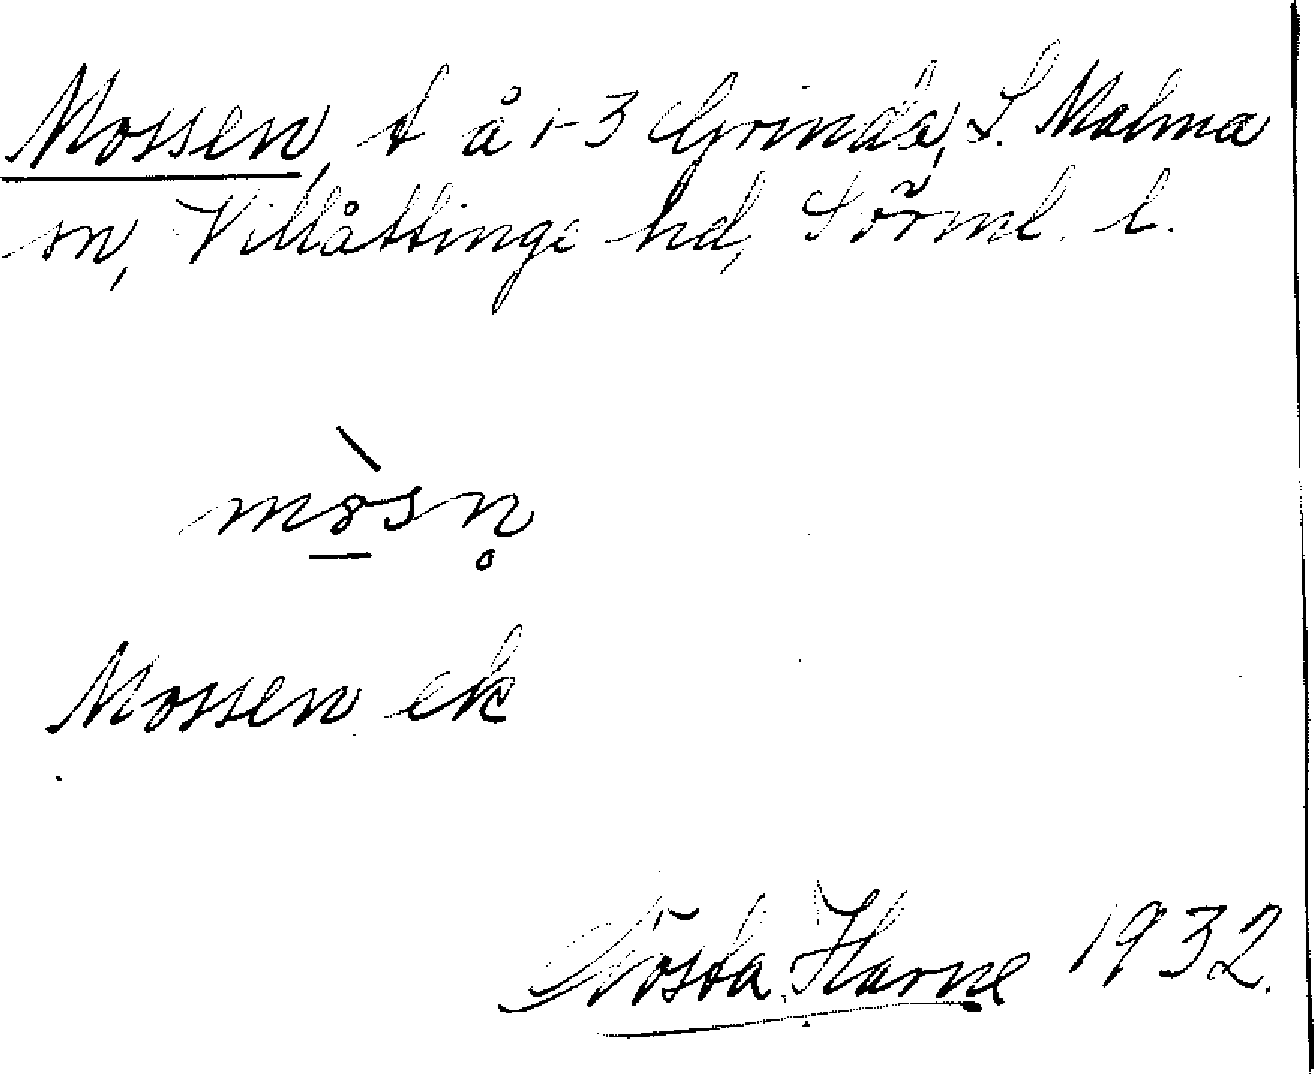 Mossen, t å 1-3 Grinda, L. Malma
sn, Villåttinge hd, Sörml. l.
mòsn̥
Mossen ek
Gösta Harne 1932.